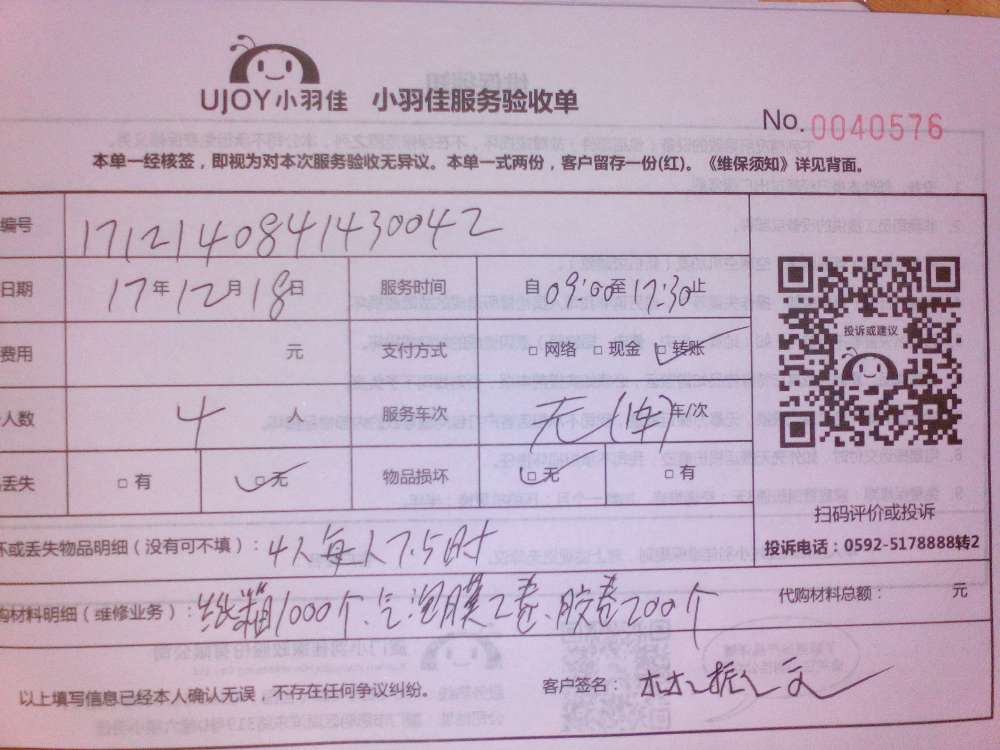 UJOY小羽佳 小羽佳服务验收单
No. 0040576
本单一经核签，即视为对本次服务验收无异议。本单一式两份，客户留存一份(红)。《维保须知》详见背面。
编号 1712140841430042
日期 17年12月18日 服务时间 自09:00至17:30止
费用 元 支付方式 □ 网络 □ 现金 □ 转账
投诉或建议
人数 4 人 服务车次 无(车)年/次
丢失 □ 有 □ 无 物品损坏 □ 无 □ 有
扫码评价或投诉
坏或丢失物品明细（没有可不填）：4人每人7.5时
投诉电话：0592-5178888转2
购材料明细（维修业务）：纸箱1000个、气泡膜2卷、胶卷200个
代购材料总额： 元
以上填写信息已经本人确认无误，不存在任何争议纠纷。 客户签名：林振文